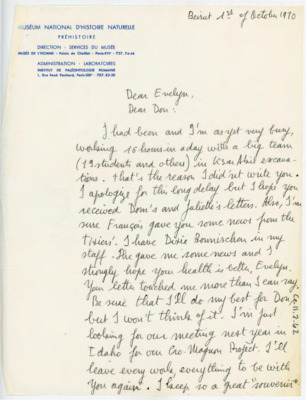 MUSÉUM NATIONAL D'HISTOIRE NATURELLE
PRÉHISTOIRE
DIRECTION - SERVICES DU MUSÉE
MUSÉE DE L'HOMME - Palais de Chaillot - Paris-XVIe -
ADMINISTRATION - LABORATOIRES
INSTITUT DE PALÉONTOLOGIE HUMAINE
1, Rue René Panhard, Paris-XIIIe -
Beirut 1st of October 1970
Dear Evelyn,
Dear Don:
I had been and I'm as yet very busy,
working 15 hours in a day with a big team
(12 students and others) in Ksar Akil excava-
tions. that's the reason I didn't write you.
I apologize for this long delay but I hope you
received Dom's and Juliette's letters. Also, I'm
sure François gave you some news from the
Tixiers'. I have Dixie Bonnischen in my
staff. She gave me some news and I
strongly hope your health is better, Evelyn.
Your letter touched me more than I can say.
Be sure that I'll do my best for Don,
but I won't think of it. I'm just
looking for our meeting next year in
Idaho for our Cro-Magnon Project. I'll
leave every work, everything to be with
you again. I keep so a great "souvenir"